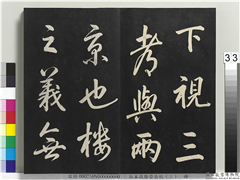 下視三
考與兩
京也樓
之義無
33